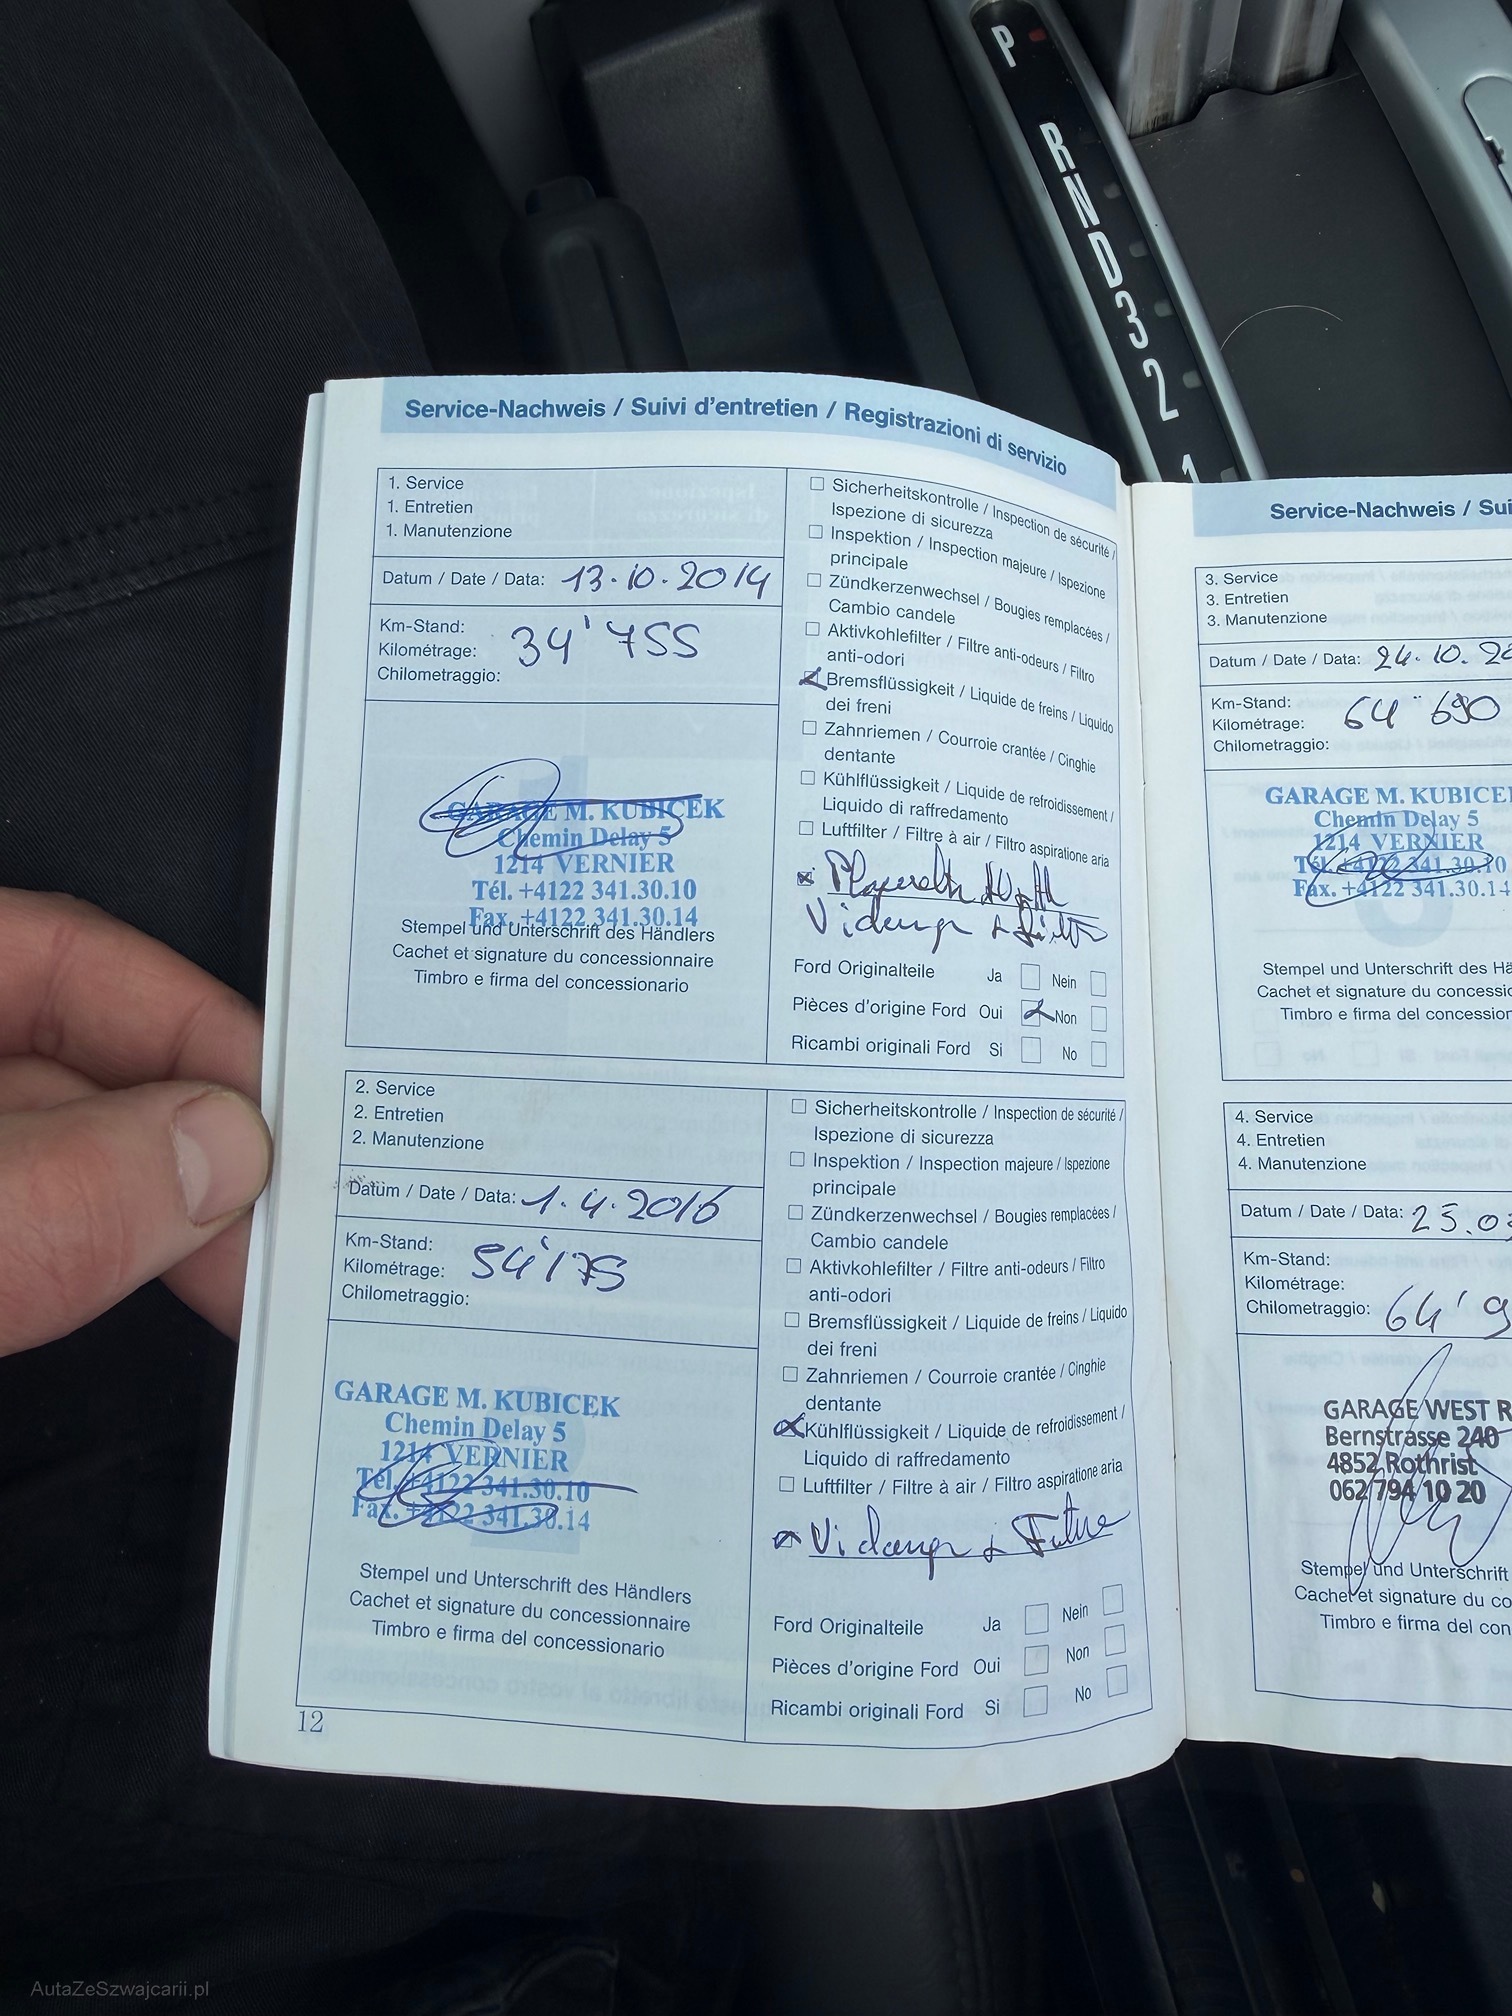 P
R
N
D
3
2
1
Service-Nachweis / Suivi d'entretien / Registrazioni di servizio
1. Service
1. Entretien
1. Manutenzione
Datum / Date / Data: 13.10.2014
Km-Stand:
Kilométrage: 34'755
Chilometraggio:
GARAGE M. KUBICEK
Chemin Delay 5
1214 VERNIER
Tél. +4122 341.30.10
Fax. +4122 341.30.14
Stempel und Unterschrift des Händlers
Cachet et signature du concessionnaire
Timbro e firma del concessionario
Sicherheitskontrolle / Inspection de sécurité /
Ispezione di sicurezza
Inspektion / Inspection majeure / Ispezione
principale
Zündkerzenwechsel / Bougies remplacées /
Cambio candele
Aktivkohlefilter / Filtre anti-odeurs / Filtro
anti-odori
Bremsflüssigkeit / Liquide de freins / Liquido
dei freni
Zahnriemen / Courroie crantée / Cinghie
dentante
Kühlflüssigkeit / Liquide de refroidissement /
Liquido di raffredamento
Luftfilter / Filtre à air / Filtro aspiratione aria
Ford Originalteile Ja Nein
Pièces d'origine Ford Oui Non
Ricambi originali Ford Si No
2. Service
2. Entretien
2. Manutenzione
Datum / Date / Data: 1.4.2016
Km-Stand:
Kilométrage: 54'175
Chilometraggio:
GARAGE M. KUBICEK
Chemin Delay 5
1214 VERNIER
Tél. +4122 341.30.10
Fax. +4122 341.30.14
Stempel und Unterschrift des Händlers
Cachet et signature du concessionnaire
Timbro e firma del concessionario
Sicherheitskontrolle / Inspection de sécurité /
Ispezione di sicurezza
Inspektion / Inspection majeure / Ispezione
principale
Zündkerzenwechsel / Bougies remplacées /
Cambio candele
Aktivkohlefilter / Filtre anti-odeurs / Filtro
anti-odori
Bremsflüssigkeit / Liquide de freins / Liquido
dei freni
Zahnriemen / Courroie crantée / Cinghie
dentante
Kühlflüssigkeit / Liquide de refroidissement /
Liquido di raffredamento
Luftfilter / Filtre à air / Filtro aspiratione aria
Ford Originalteile Ja Nein
Pièces d'origine Ford Oui Non
Ricambi originali Ford Si No
12
Service-Nachweis / Sui
3. Service
3. Entretien
3. Manutenzione
Datum / Date / Data: 24.10.20
Km-Stand:
Kilométrage: 64 690
Chilometraggio:
GARAGE M. KUBICE
Chemin Delay 5
1214 VERNIER
Tél. +4122 341.30.10
Fax. +4122 341.30.14
Stempel und Unterschrift des Hä
Cachet et signature du concessio
Timbro e firma del concession
4. Service
4. Entretien
4. Manutenzione
Datum / Date / Data: 25.03
Km-Stand:
Kilométrage:
Chilometraggio: 64'9
GARAGE WEST R
Bernstrasse 240
4852 Rothrist
062 794 10 20
Stempel und Unterschrift
Cachet et signature du co
Timbro e firma del con
AutaZeSzwajcarii.pl